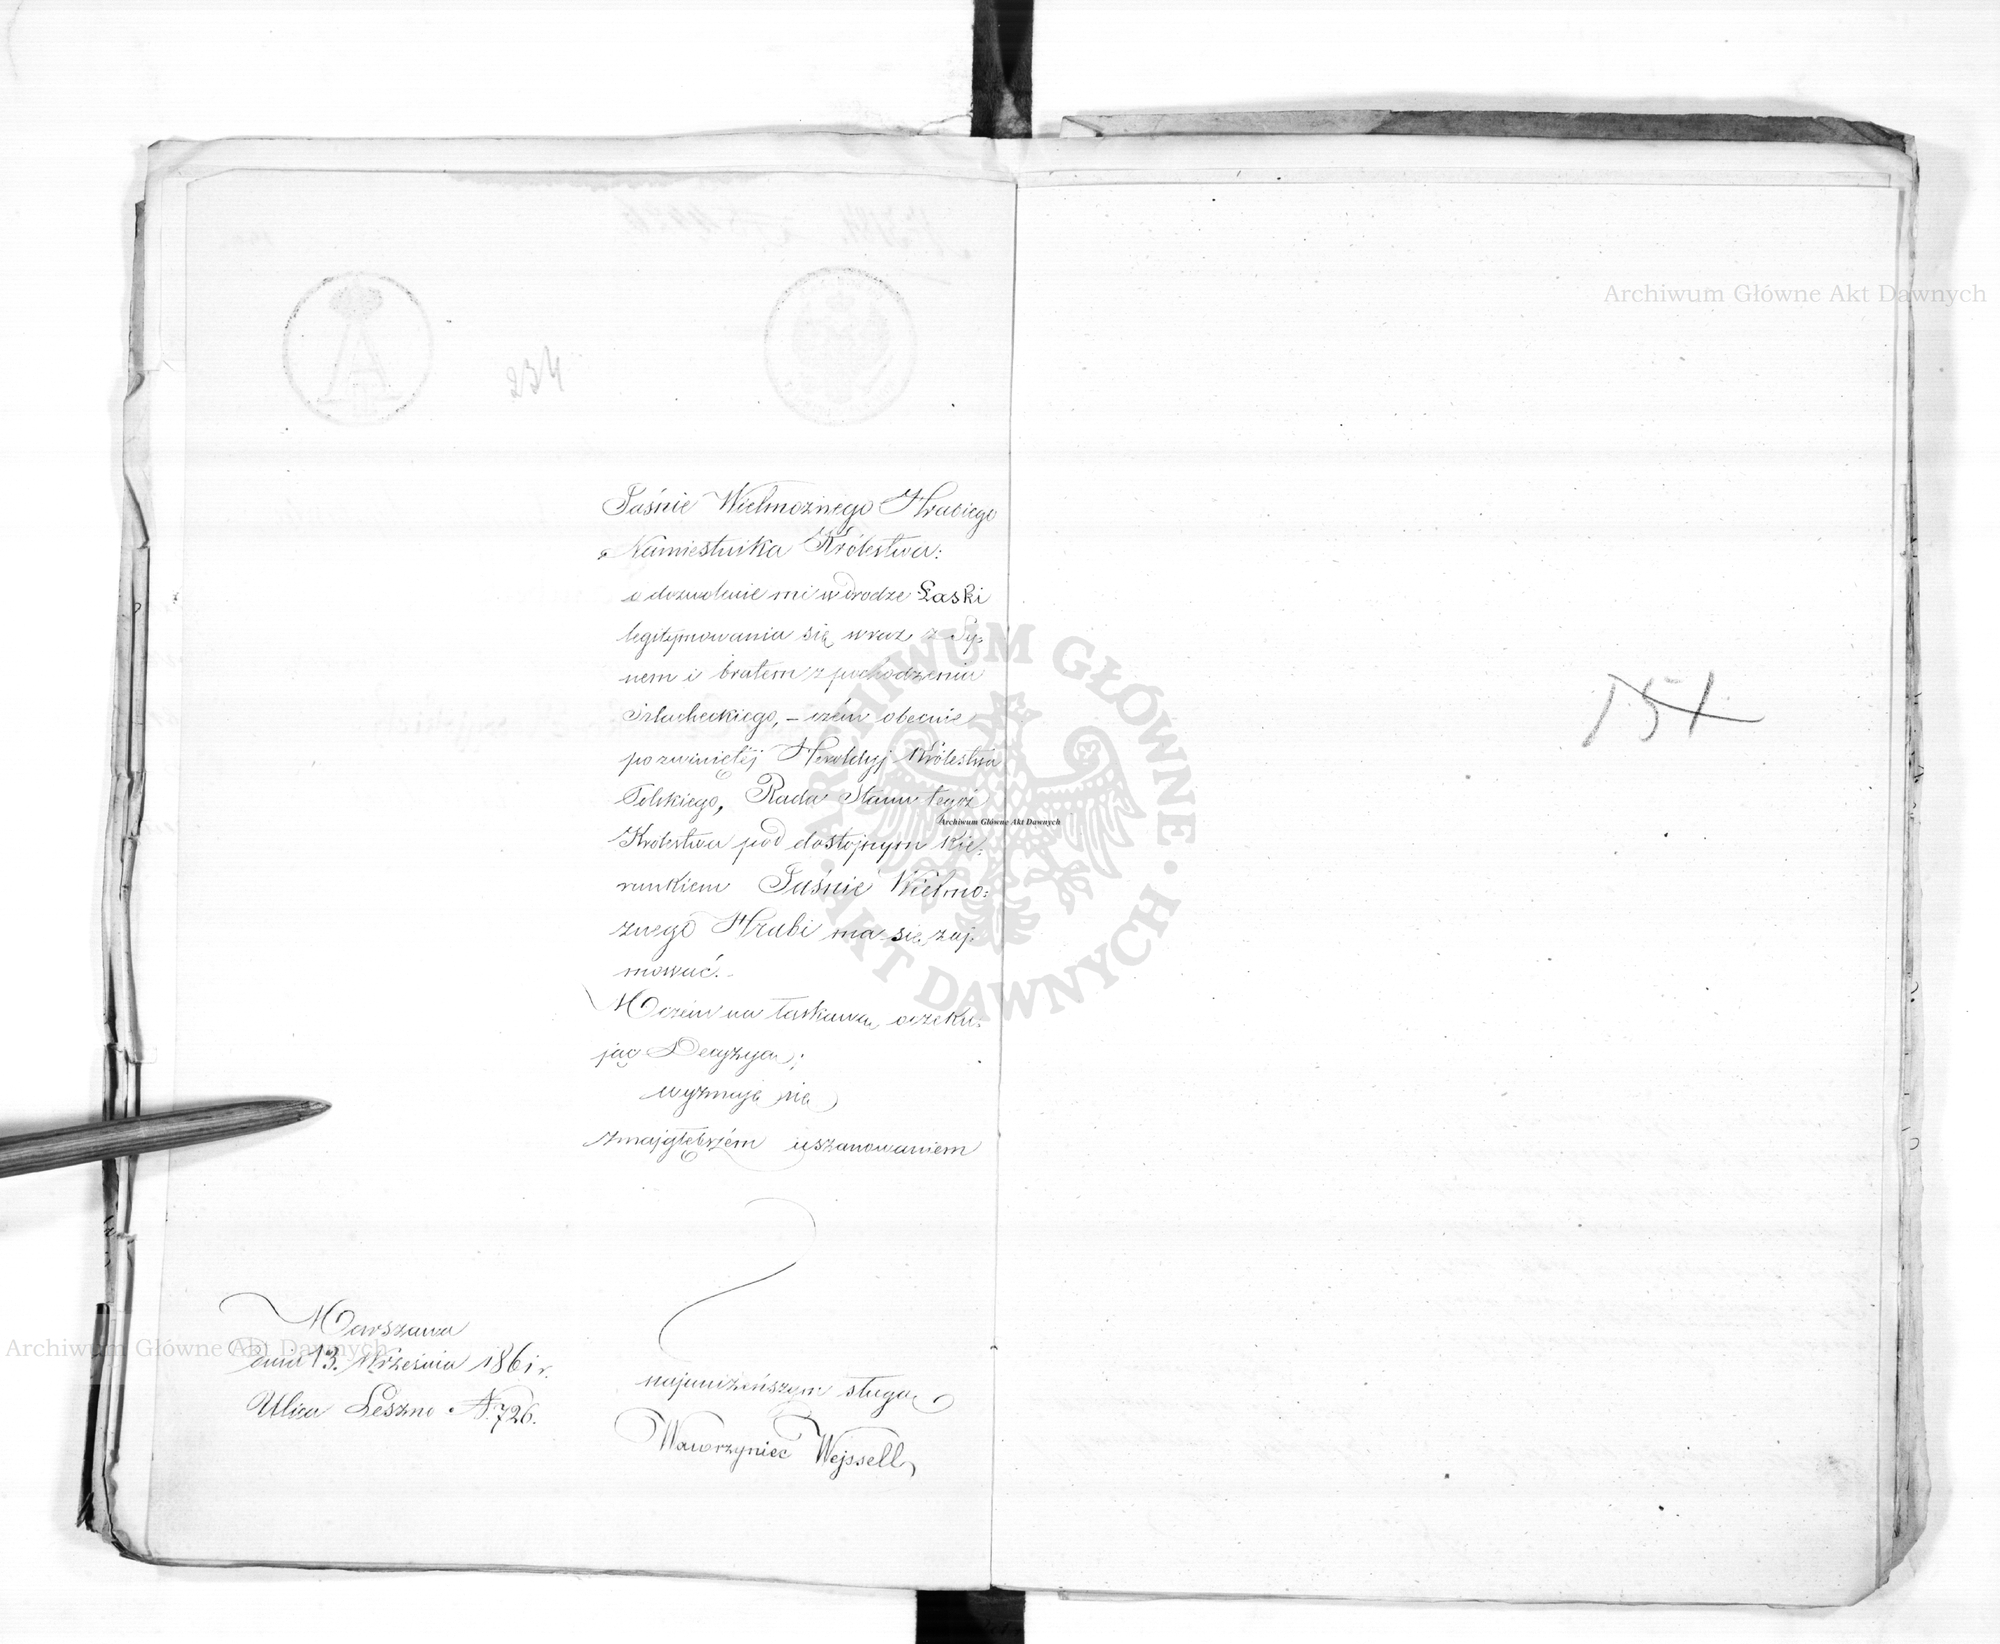 234
Jaśnie Wielmożnego Hrabiego
Namiestnika Królestwa:
o dozwolenie mi w drodze Łaski
legitymowania się wraz z Sy=
nem i bratem z pochodzenia
szlacheckiego, – czém obecnie
po zwiniętéj Heroldyj Królestwa
Polskiego, Rada Stanu tegoż
Królestwa pod dostojnym Kie=
runkiem Jaśnie Wielmo=
żnego Hrabi ma się zaj=
mować.–
W czém na łaskawą oczeku=
jąc Decyzyą;
wyznaję się
z najgłębszém uszanowaniem
najuniżeńszym sługą
Wawrzyniec Wejssell
Warszawa
dnia 13. Września 1861 r.
Ulica Leszno N. 726.
151
Archiwum Główne Akt Dawnych
ARCHIWUM GŁÓWNE · AKT DAWNYCH ·
Archiwum Główne Akt Dawnych
Archiwum Główne Akt Dawnych